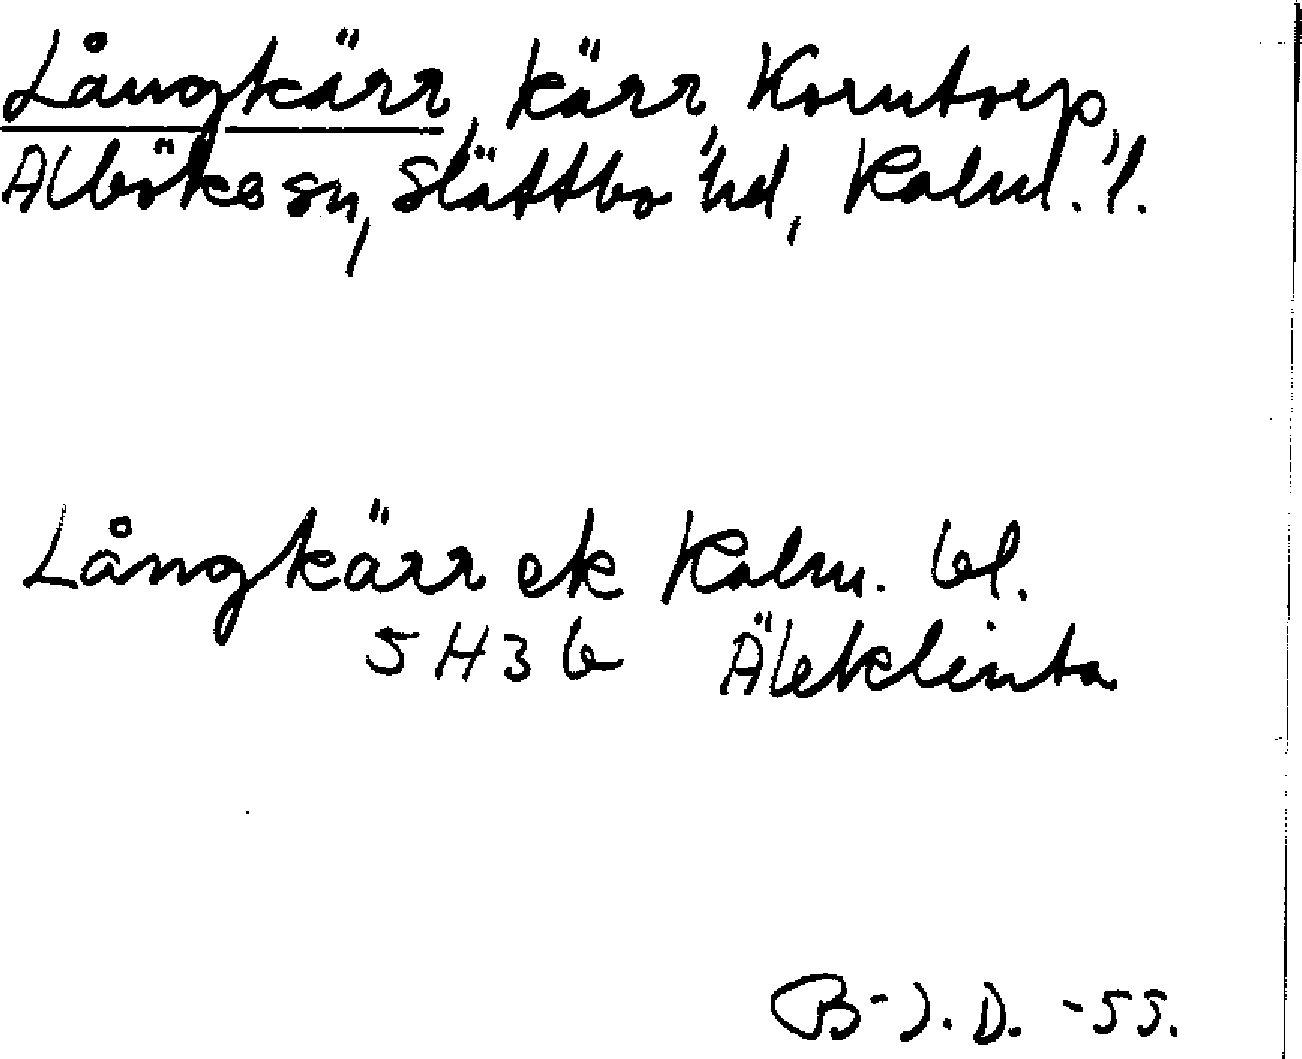 Långkärr, kärr, Korntorp,
Alböke sn, Slättbo hd, Kalm. l.
Långkärr ek Kalm. bl.
5 H 3 b Äleklinta
B-J. D. -55.